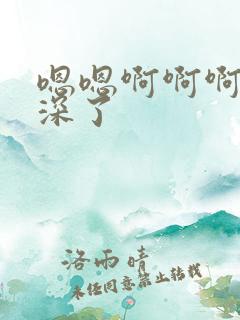 嗯嗯啊啊啊
深了
洛雨晴
未经同意禁止转载